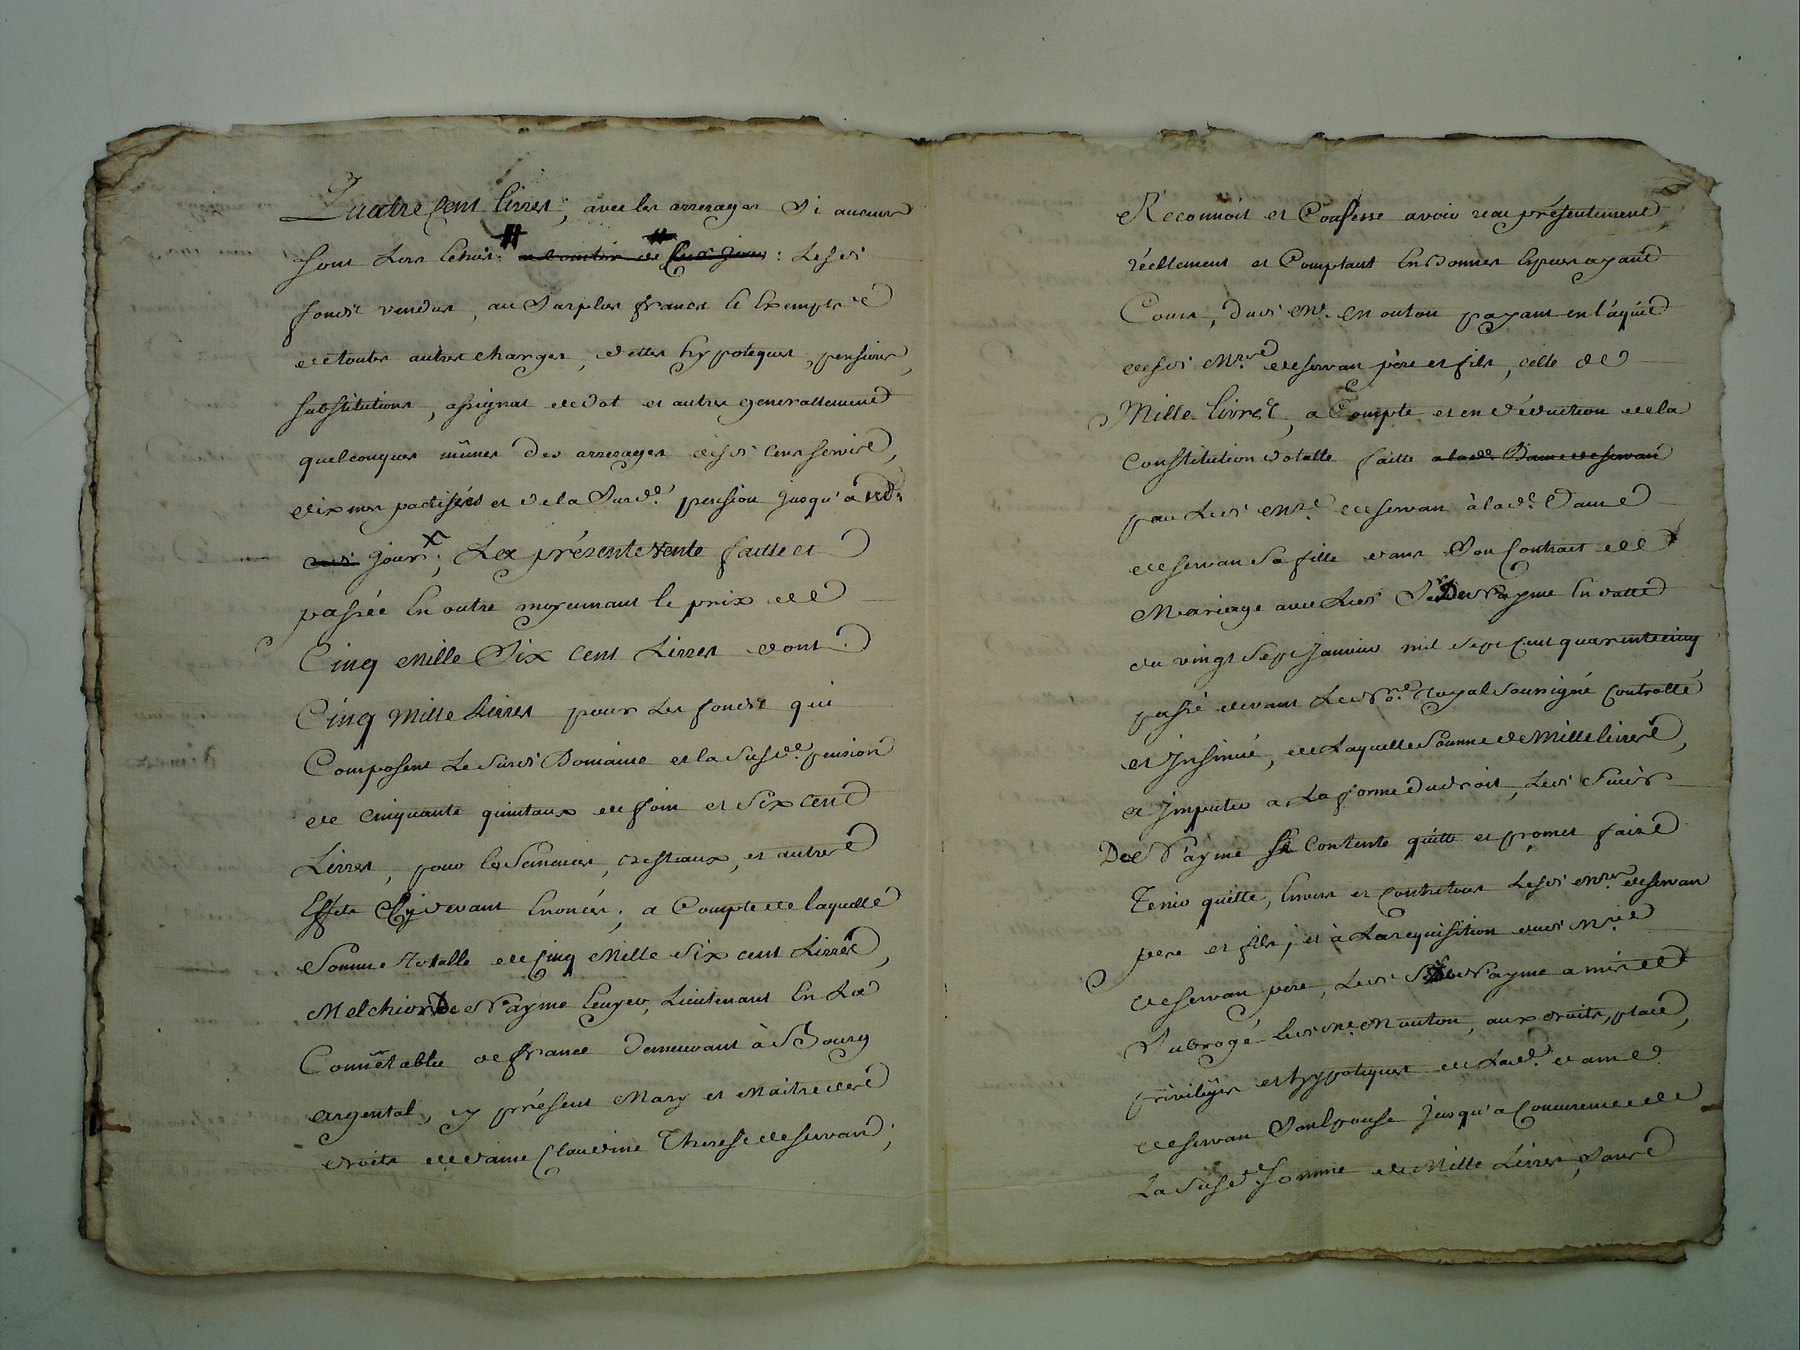 Quatre Cent livres, avec les arrerages Si aucuns
sont dus Echus # a compter de # Ces jour : Lesdt
fonds vendus, au Surplus francs & Exempts
de toutes autres charges, dettes hypoteques, pensions,
substitutions, assignat de dot et autres generallement
quelconques mêmes des arrerages desdt cens servis,
dixmes pactisées et de la Susde. pension jusqu'à
jour X; La présente Vente faitte et
passée En outre moyennant le prix de
Cinq Mille Six Cent Livres dont
Cinq Mille Livres pour les fonds qui
Composent Le Susdt Domaine et la Susde. pension
de cinquante quintaux de foin et Six Cent
Livres, pour les Semences, bestiaux, et autres
Effets Cy devant Enoncés; a Compte de laquelle
Somme Totalle de Cinq Mille Six cent Livres,
Melchior De Payme Ecuyer, Lieutenant En La
Connétablie de france demeurant à Bourg
argental, cy présent Mary et Maitre des
droits de dame Claudine Therese de servan,
Reconnoit et Confesse avoir reçu présentement,
réellement et Comptant En Bonnes Especes ayant
Cours, dudt Mr. Mouton payant en l'aquit
desdt Mrs. de servan père et fils, celle de
Mille livres, a Compte et en déduction de la
Constitution dotalle faitte a lade. Dame de servan
par Ledt Mr. de servan à lade. Dame
de servan Sa fille dans Son Contract de
Mariage avec Ledt Sr. De Payme En datte
du vingt Sept Janvier mil Sept Cent quarente cinq
passé devant Le No.re Royal Soussigné Controllé
et Insinué, de Laquelle Somme de Mille livres,
a Imputer a La forme du droit, Ledt Sieur
De Payme Se Contente quitte et promet faire
Tenir quitte, Envers et Contre tous Lesdt Mrs. de servan
pere et fils; et à La requisition dudt Mr.
de servan pere, Ledt Sr. De Payme a mis et
Subrogé Ledt Mr. Mouton, aux droits, place,
privileges et hypoteques de Lade. dame
de servan Son Epouse jusqu'a Concurrence de
La Susde. Somme de Mille Livres, Sans